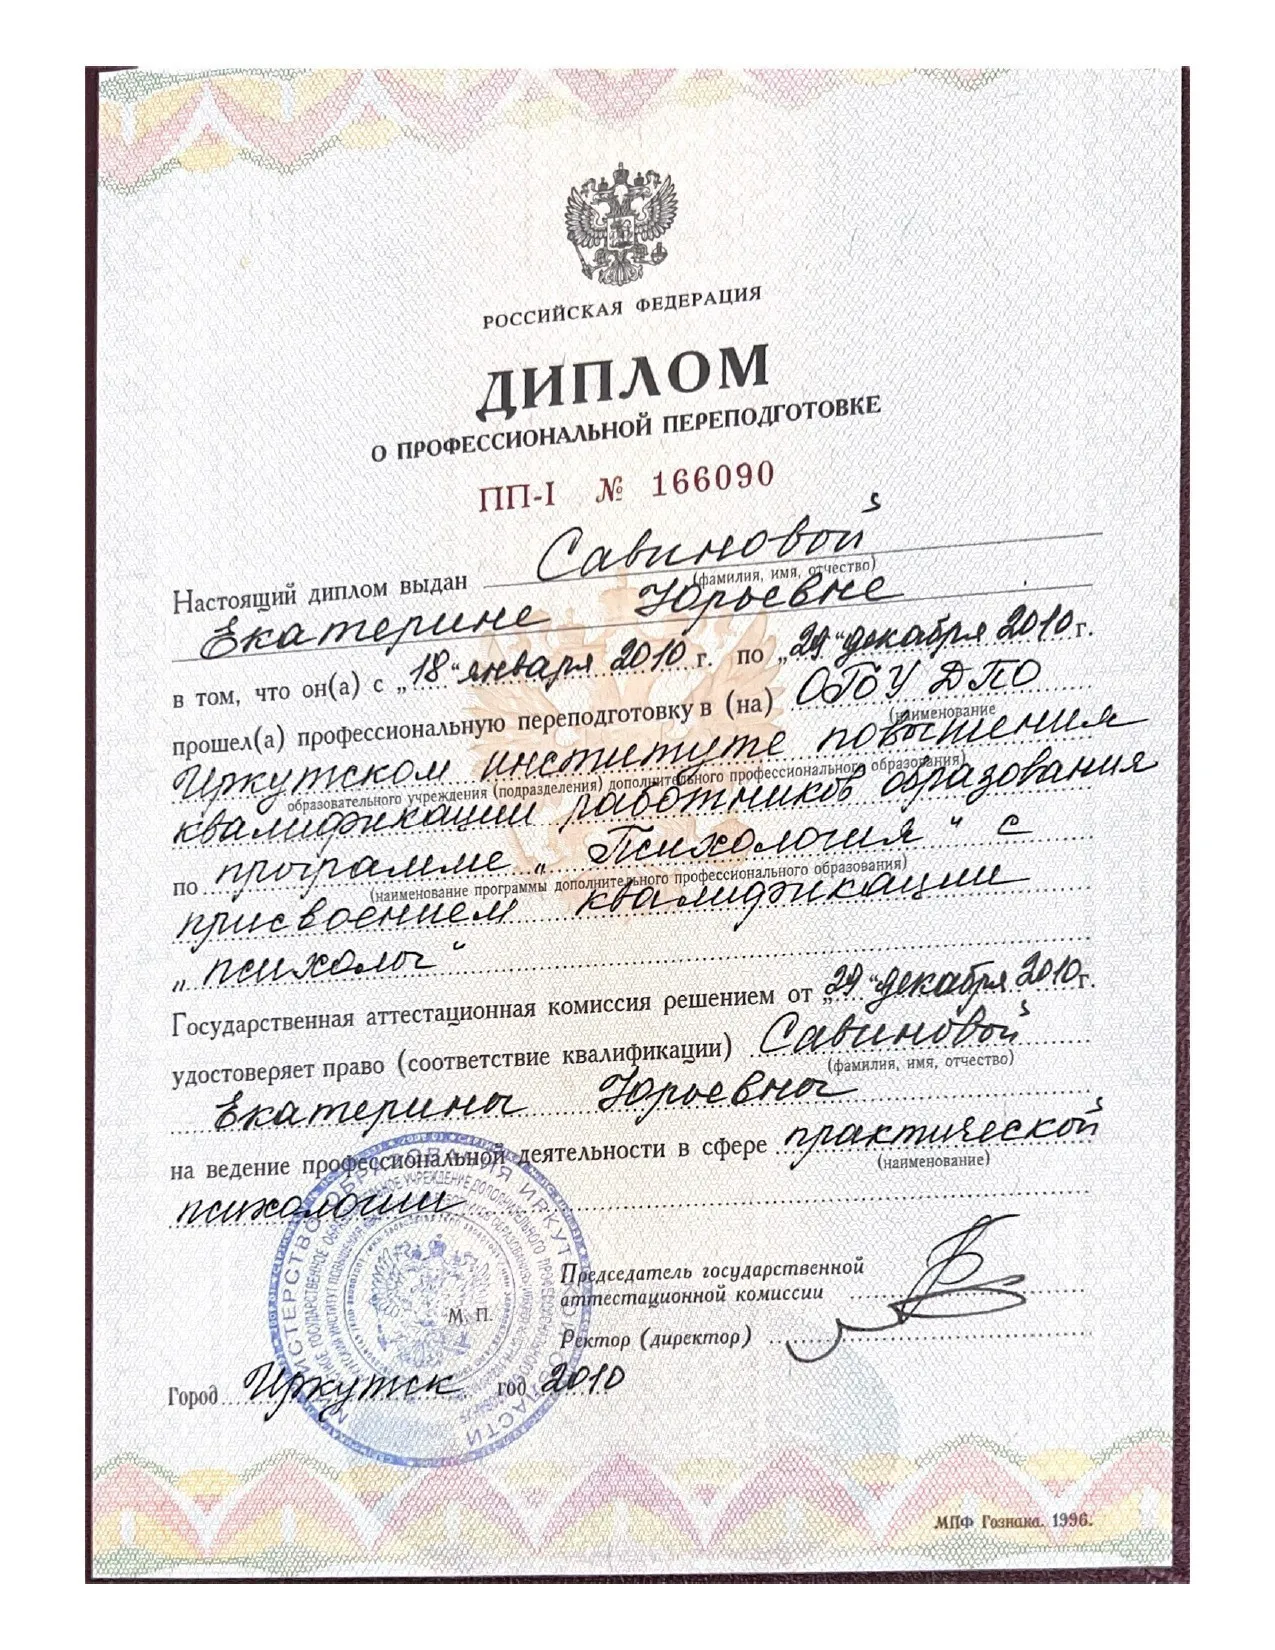 РОССИЙСКАЯ ФЕДЕРАЦИЯ
ДИПЛОМ
О ПРОФЕССИОНАЛЬНОЙ ПЕРЕПОДГОТОВКЕ
ПП-I № 166090
Настоящий диплом выдан Савиновой
(фамилия, имя, отчество)
Екатерине Юрьевне
в том, что он(а) с „18“ января 2010 г. по „29“ декабря 2010 г.
прошел(а) профессиональную переподготовку в (на) ОГОУ ДПО
(наименование
Иркутском институте повышения
образовательного учреждения (подразделения) дополнительного профессионального образования)
квалификации работников образования
по программе „Психология“ с
(наименование программы дополнительного профессионального образования)
присвоением квалификации
„психолог“
Государственная аттестационная комиссия решением от „29“ декабря 2010 г.
удостоверяет право (соответствие квалификации) Савиновой
(фамилия, имя, отчество)
Екатерины Юрьевны
на ведение профессиональной деятельности в сфере практической
(наименование)
психологии
Председатель государственной
аттестационной комиссии
М. П.
Ректор (директор)
Город Иркутск год 2010
МИНИСТЕРСТВО ОБРАЗОВАНИЯ ИРКУТСКОЙ ОБЛАСТИ
МПФ Гознака. 1996.